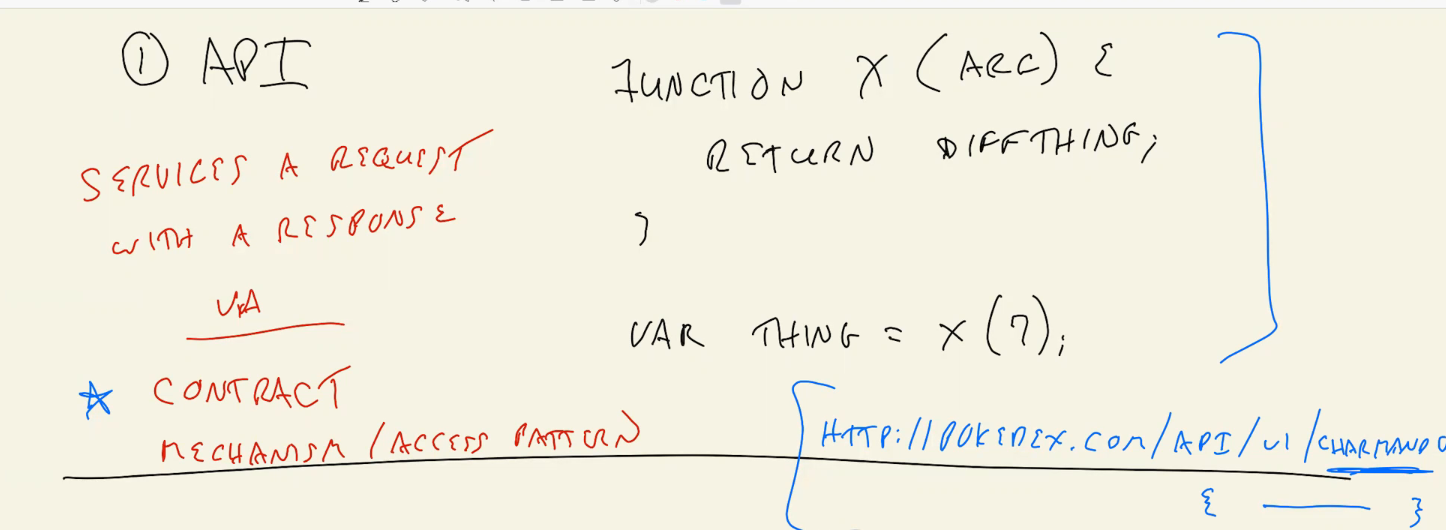 ① API
SERVICES A REQUEST
WITH A RESPONSE
VIA
CONTRACT
MECHANISM / ACCESS PATTERN
FUNCTION X (ARG) {
RETURN DIFFTHING;
}
VAR THING = X (7);
HTTP://POKEDEX.COM/API/V1/CHARMAND
{ }